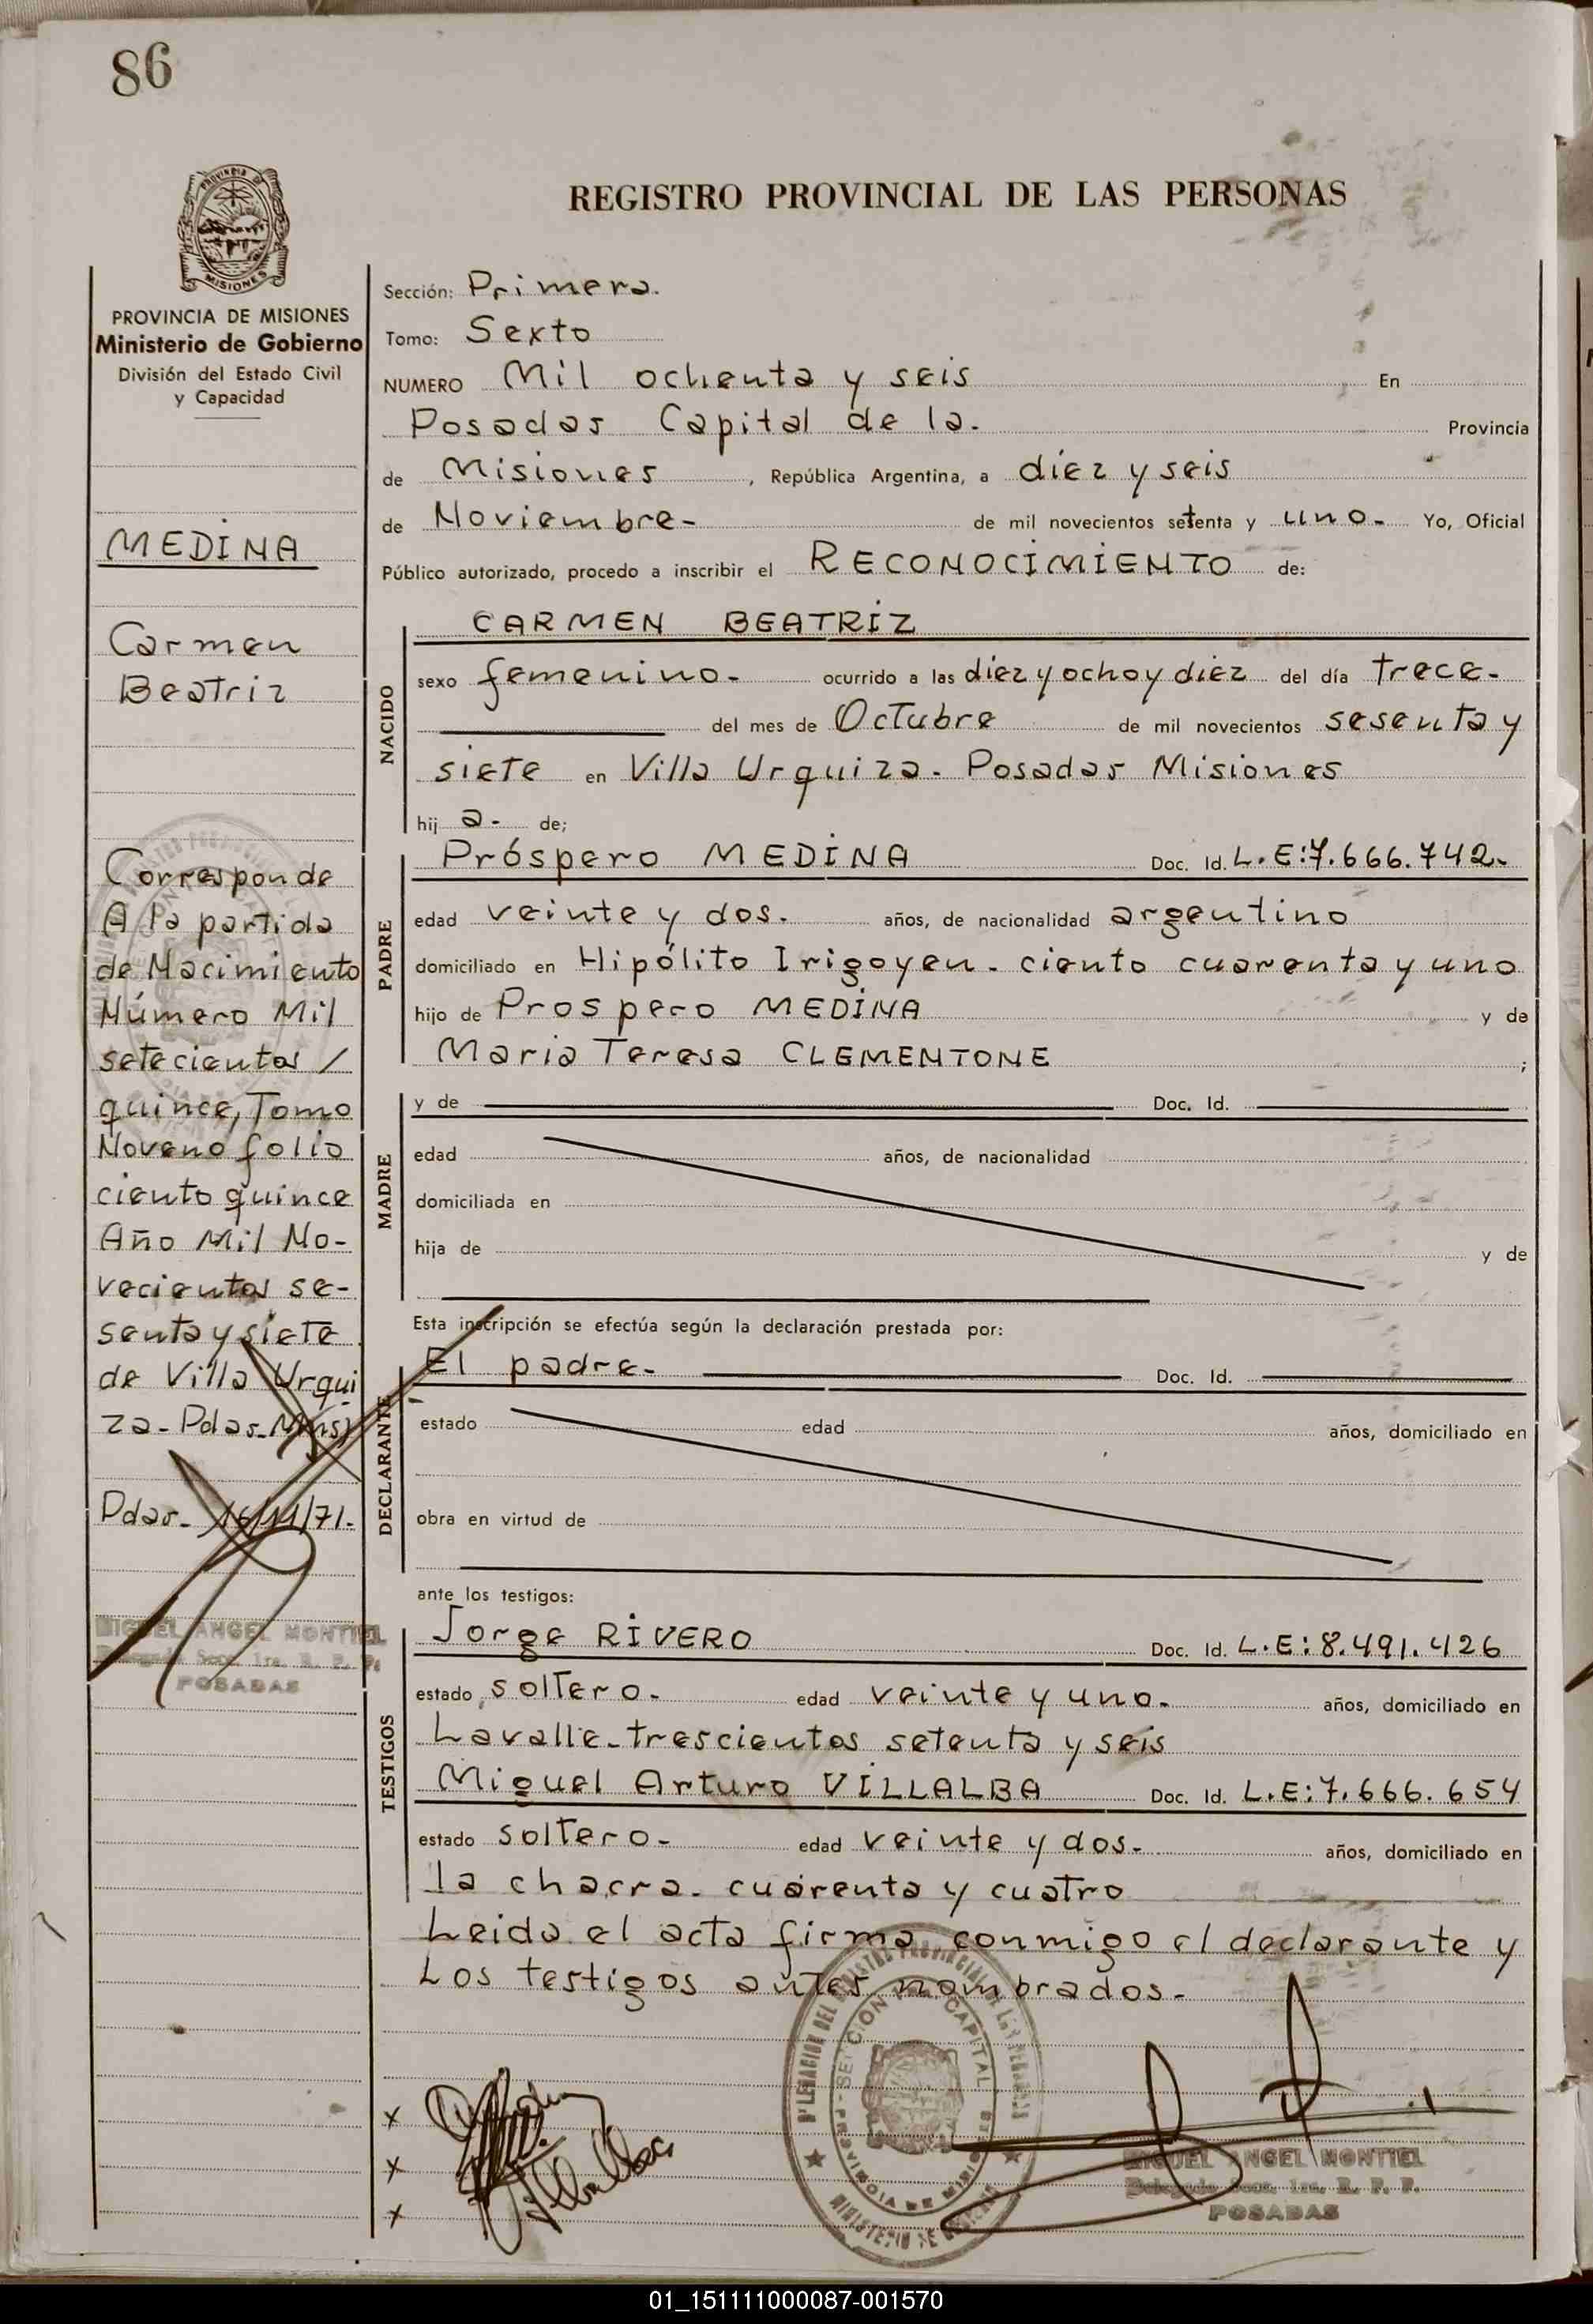 86
PROVINCIA DE MISIONES
REGISTRO PROVINCIAL DE LAS PERSONAS
PROVINCIA DE MISIONES
Ministerio de Gobierno
División del Estado Civil
y Capacidad
MEDINA
Carmen
Beatriz
Corresponde
A la partida
de Nacimiento
Número Mil
setecientos /
quince, Tomo
Noveno folio
ciento quince
Año Mil No-
vecientos se-
senta y siete
de Villa Urqui
za - Pdas - Mns)
Pdas - 16/11/71.
MIGUEL ANGEL MONTIEL
Delegado Secc. 1ra. R. P. P.
POSADAS
Sección: Primera.
Tomo: Sexto
NUMERO Mil ochenta y seis En
Posadas Capital de la. Provincia
de Misiones, República Argentina, a diez y seis
de Noviembre- de mil novecientos setenta y uno- Yo, Oficial
Público autorizado, procedo a inscribir el RECONOCIMIENTO de:
NACIDO
CARMEN BEATRIZ
sexo femenino- ocurrido a las diez y ocho y diez del día trece-
del mes de Octubre de mil novecientos sesenta y
siete en Villa Urquiza- Posadas Misiones
hij a- de;
PADRE
Próspero MEDINA Doc. Id. L.E:7.666.742.
edad veinte y dos. años, de nacionalidad argentino
domiciliado en Hipólito Irigoyen- ciento cuarenta y uno
hijo de Prospero MEDINA y de
Maria Teresa CLEMENTONE ;
MADRE
y de Doc. Id.
edad años, de nacionalidad
domiciliada en
hija de y de
Esta inscripción se efectúa según la declaración prestada por:
DECLARANTE
El padre- Doc. Id.
estado edad años, domiciliado en
obra en virtud de
ante los testigos:
TESTIGOS
Jorge RIVERO Doc. Id. L.E:8.491.426
estado soltero- edad veinte y uno- años, domiciliado en
Lavalle- trescientos setenta y seis
Miguel Arturo VILLALBA Doc. Id. L.E:7.666.654
estado soltero- edad veinte y dos- años, domiciliado en
la chacra- cuarenta y cuatro
Leida el acta firma conmigo el declarante y
Los testigos antes nombrados-
x
x
x
SECCION CAPITAL
PROVINCIA DE MISIONES
MIGUEL ANGEL MONTIEL
Delegado Secc. 1ra. R. P. P.
POSADAS
01_151111000087-001570